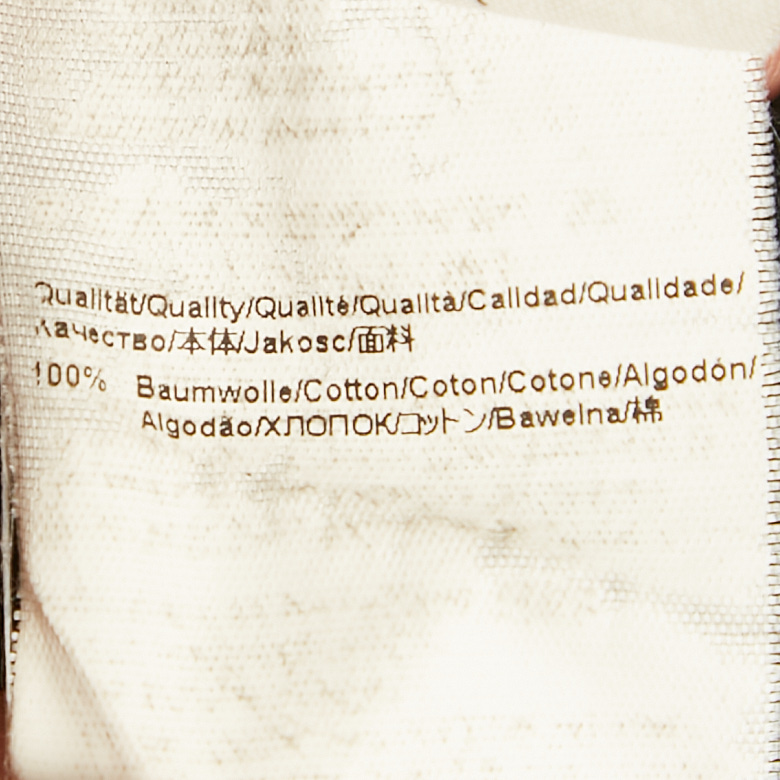 Qualität/Quality/Qualité/Qualità/Calidad/Qualidade/
Качество/本体/Jakosc/面料
100% Baumwolle/Cotton/Coton/Cotone/Algodón/
Algodão/ХЛОПОК/コットン/Bawelna/棉